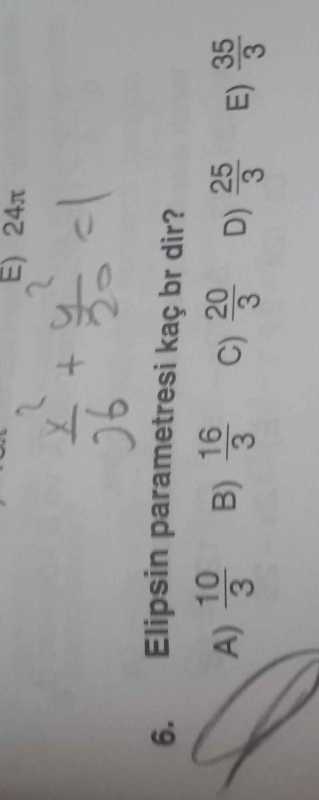 E) 24π
x²/36 + y²/20 = 1
6. Elipsin parametresi kaç br dir?
A) 10/3 B) 16/3 C) 20/3 D) 25/3 E) 35/3